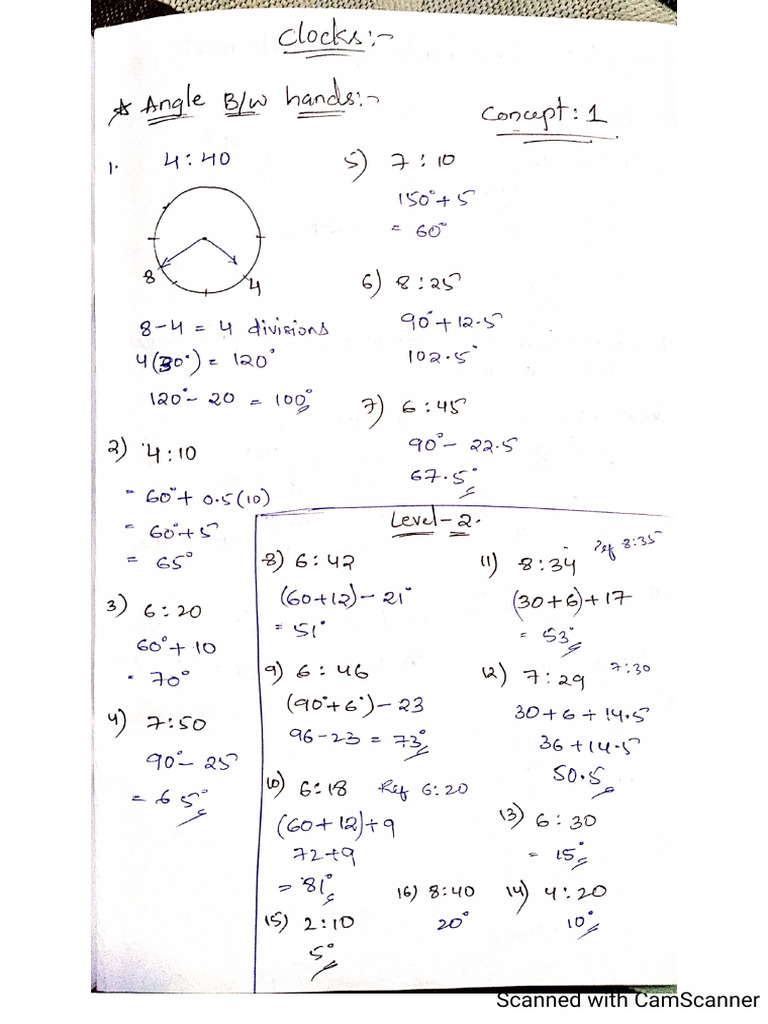 Clocks:-
* Angle B/W hands:-
Concept: 1
1. 4:40
8
4
8-4 = 4 divisions
4(30°) = 120°
120°- 20 = 100°
2) 4:10
= 60°+ 0.5(10)
= 60°+5
= 65°
3) 6:20
60°+ 10
= 70°
4) 7:50
90°- 25
= 65°
5) 7:10
150°+5
= 60°
6) 8:25
90°+12.5
102.5°
7) 6:45
90°- 22.5
67.5°
Level-2.
8) 6:42
(60+12)- 21°
= 51°
9) 6:46
(90°+6°)-23
96-23 = 73°
10) 6:18 Ref 6:20
(60+12)+9
72+9
= 81°
15) 2:10
5°
16) 8:40
20°
11) 8:34 Ref 8:35
(30+6)+17
= 53°
12) 7:29 7:30
30+6+14.5
36+14.5
50.5
13) 6:30
= 15°
14) 4:20
10°
Scanned with CamScanner